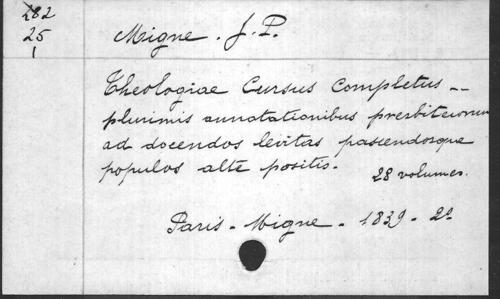 282
25
1
Migne. J. P.
Theologiae Cursus Completus --
plurimis annotationibus presbiterorum
ad docendos levitas pascendosque
populos alte positis.
28 volumes.
Paris - Migne - 1839 - 2º